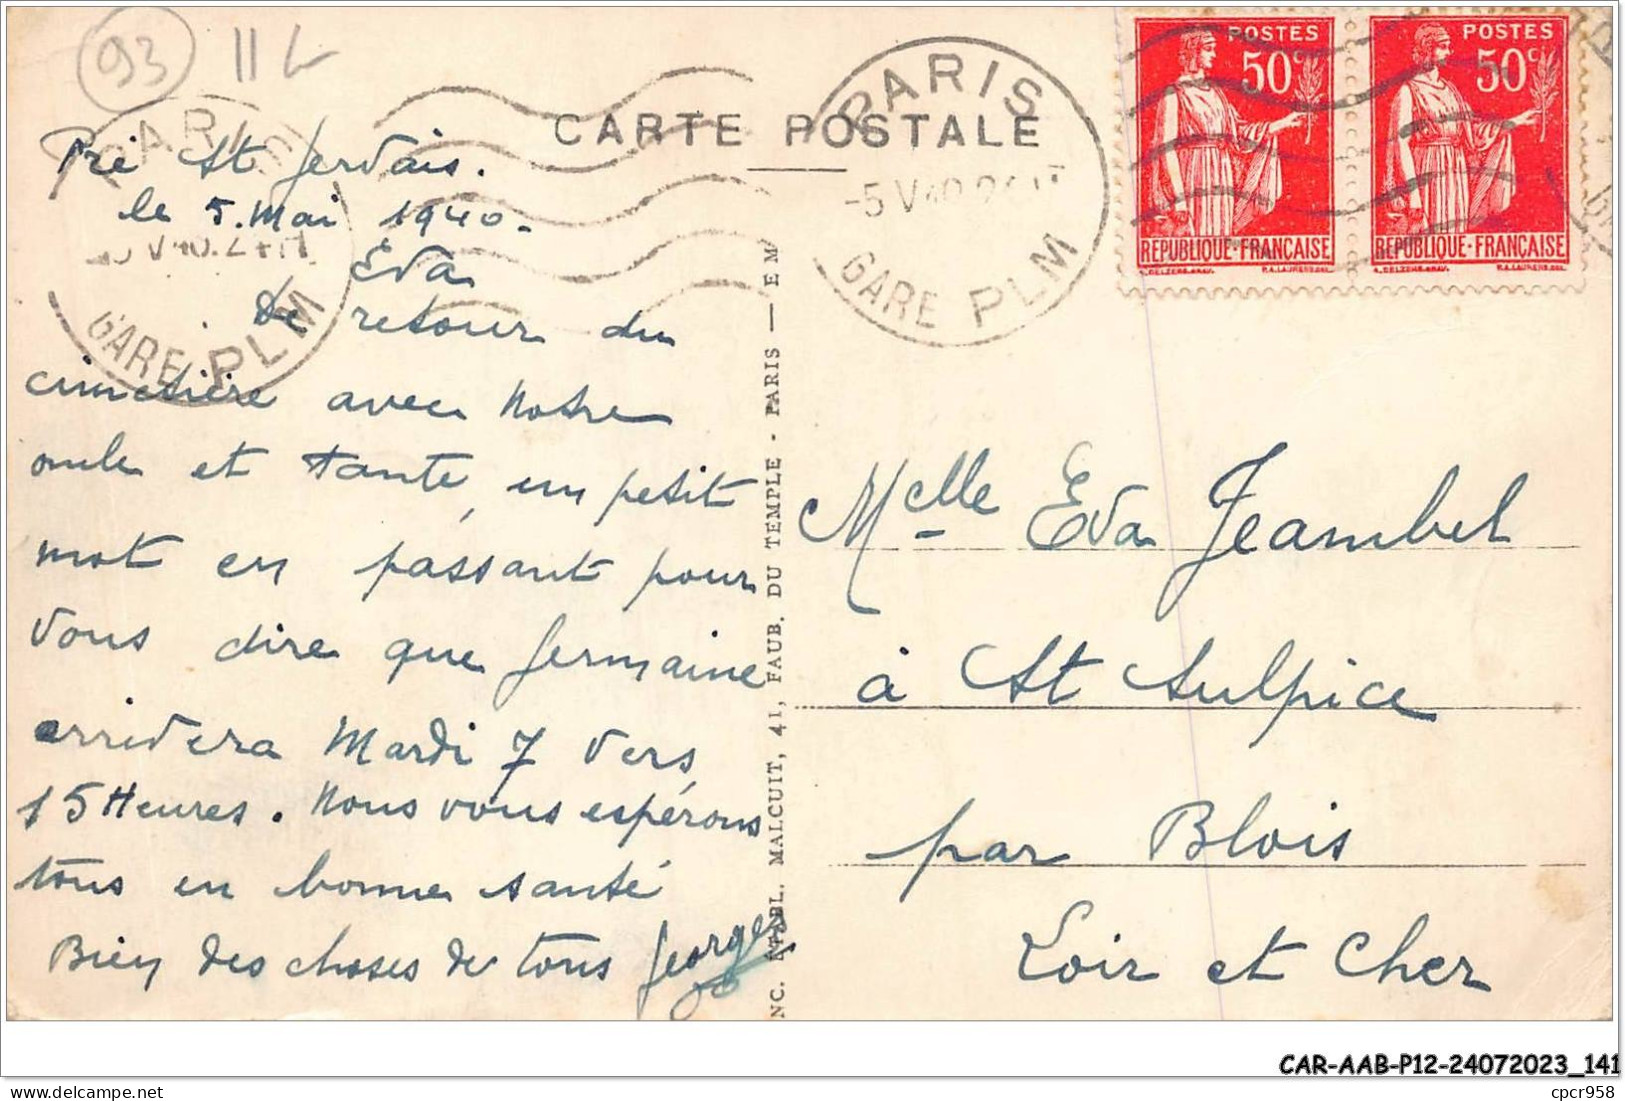 93 11 L
CARTE POSTALE
PARIS
-5 V 40
GARE PLM
PARIS
GARE PLM
POSTES
50c
REPUBLIQUE·FRANÇAISE
POSTES
50c
REPUBLIQUE·FRANÇAISE
Pré St Gervais.
le 5. Mai 1940.
Eva
De retour du
cimetière avec Notre
oncle et tante, un petit
mot en passant pour
vous dire que Germaine
arrivera Mardi 7 vers
15 Heures. Nous vous espérons
tous en bonne santé
Bien des choses de tous Georges
NC. ETABL. MALCUIT, 41, FAUB. DU TEMPLE - PARIS — E M
Melle Eva Jeambel
à St Sulpice
par Blois
Loir et Cher
CAR-AAB-P12-24072023_141
cpcr958